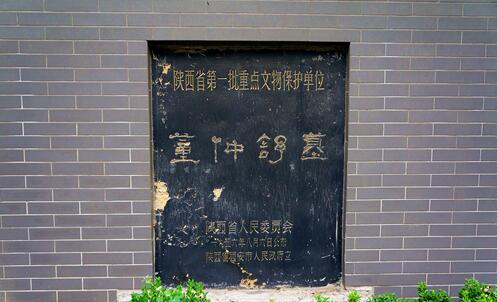 陕西省第一批重点文物保护单位
董仲舒墓
陕西省人民委员会
一九五六年八月六日公布
陕西省西安市人民政府立